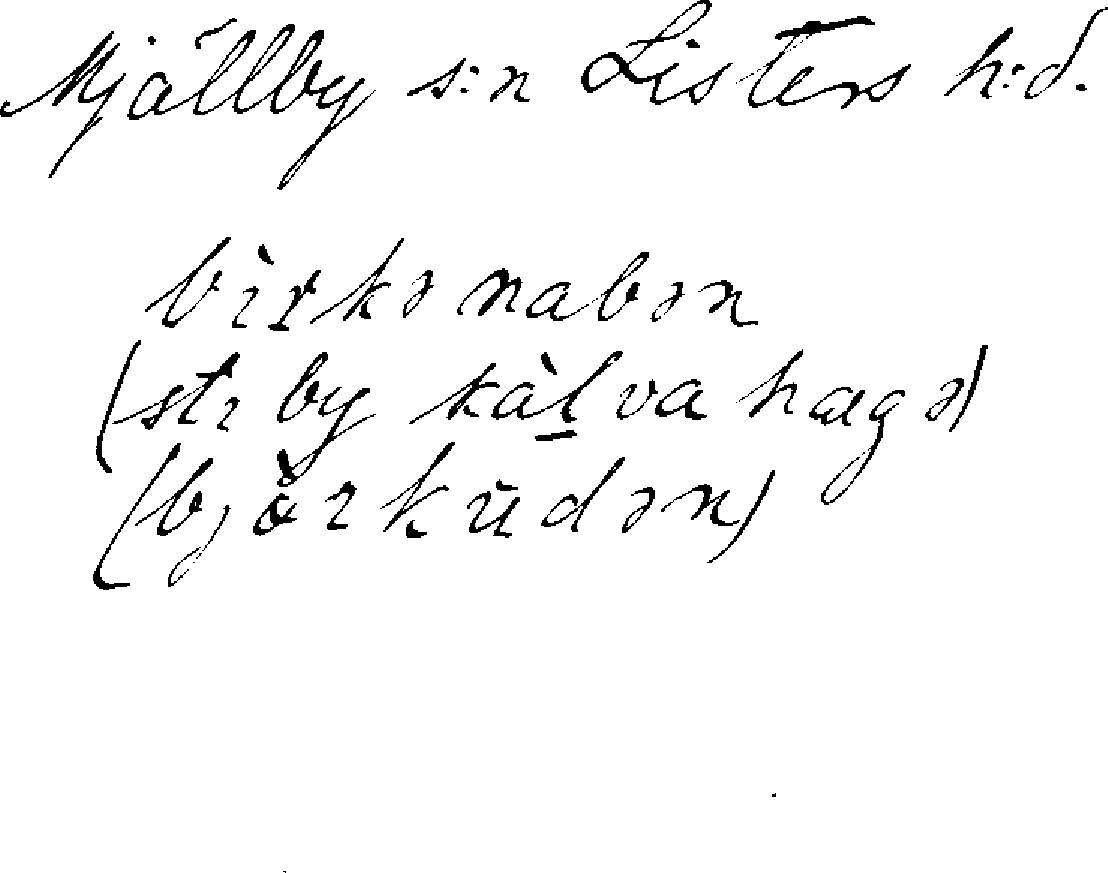 Mjällby s:n Listers h:d.
bìrkə nabən
(stɿ by kàl̲va hagə)
(bjòɿkūdən)